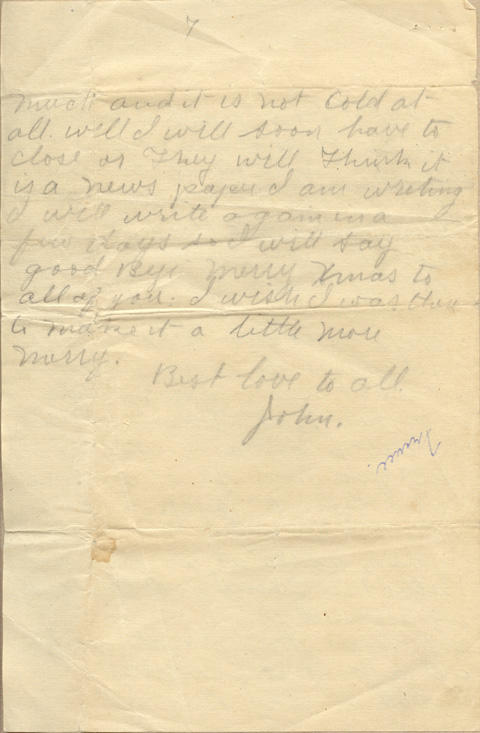 7
much and it is not Cold at
all. well I will soon have to
close or They will Think it
is a news paper I am writing
I will write again in a
few days so I will say
good Bye Merry Xmas to
all of you. I wish I was there
to make it a little more
merry.
Best love to all
John.